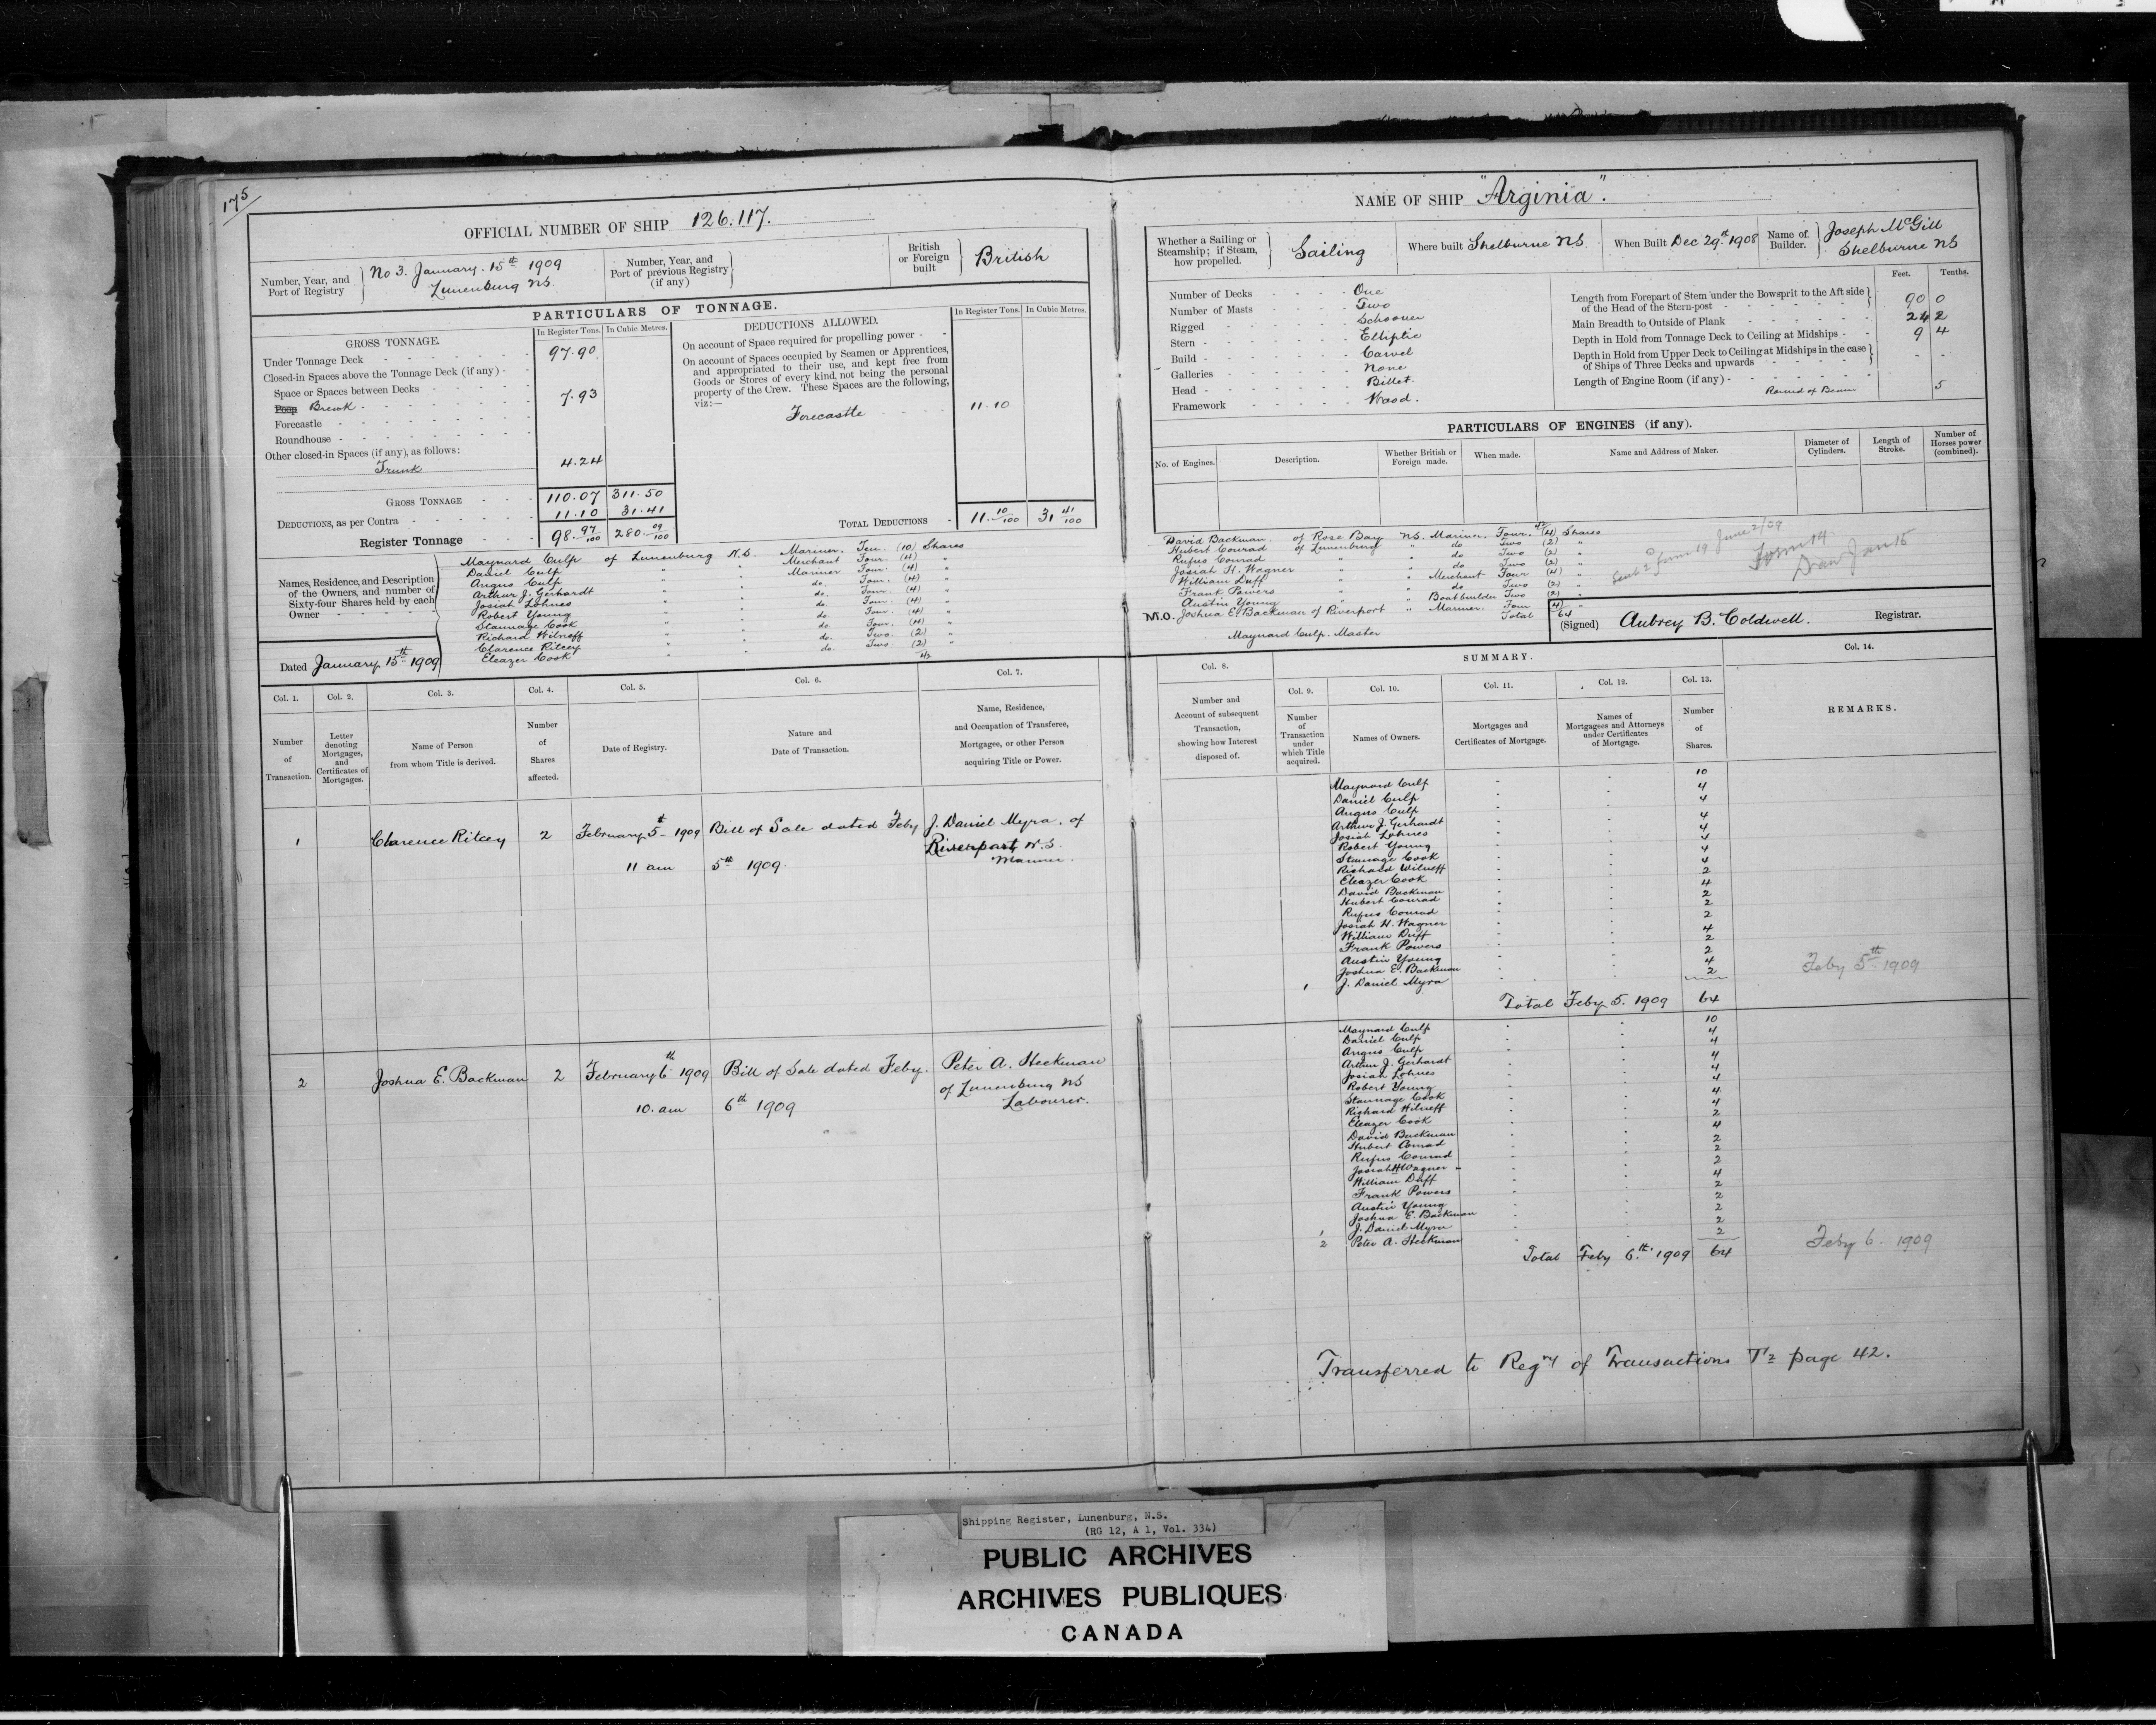 175
OFFICIAL NUMBER OF SHIP 126.117.
Number, Year, and Port of Registry
No 3. January. 15th 1909
Lunenburg NS.
Number, Year, and Port of previous Registry (if any)
British or Foreign built
British
PARTICULARS OF TONNAGE.
GROSS TONNAGE.
In Register Tons. In Cubic Metres.
Under Tonnage Deck 97.90
Closed-in Spaces above the Tonnage Deck (if any)
Space or Spaces between Decks
Poop Break 7.93
Forecastle
Roundhouse
Other closed-in Spaces (if any), as follows:
Trunk 4.24
GROSS TONNAGE 110.07 311.50
DEDUCTIONS, as per Contra 11.10 31.41
Register Tonnage 98.97/100 280.09/100
DEDUCTIONS ALLOWED.
In Register Tons. In Cubic Metres.
On account of Space required for propelling power
On account of Spaces occupied by Seamen or Apprentices,
and appropriated to their use, and kept free from
Goods or Stores of every kind, not being the personal
property of the Crew. These Spaces are the following,
viz:—
Forecastle 11.10
TOTAL DEDUCTIONS 11.10/100 31 41/100
Names, Residence, and Description
of the Owners, and number of
Sixty-four Shares held by each
Owner
Maynard Culp of Lunenburg N.S. Mariner. Ten. (10) Shares
Daniel Culp " " Merchant Four. (4) "
Angus Culp " " Mariner Four. (4) "
Arthur J. Gerhardt " " do. Four. (4) "
Josiah Lohnes " " do. Four. (4) "
Robert Young " " do. Four. (4) "
Stannage Cook " " do. Four. (4) "
Richard Wilneff " " do. Four. (4) "
Clarence Ritcey " " do. Two. (2) "
Eleazer Cook " " do. Two (2) "
42
Dated January 15th 1909
NAME OF SHIP "Arginia".
Whether a Sailing or Steamship; if Steam, how propelled.
Sailing
Where built Shelburne NS.
When Built Dec 29th 1908
Name of Builder.
Joseph McGill
Shelburne NS
Number of Decks One
Number of Masts Two
Rigged Schooner
Stern Elliptic
Build Carvel
Galleries None
Head Billet.
Framework Wood.
Feet. Tenths.
Length from Forepart of Stem under the Bowsprit to the Aft side
of the Head of the Stern-post 90 0
Main Breadth to Outside of Plank 24 2
Depth in Hold from Tonnage Deck to Ceiling at Midships 9 4
Depth in Hold from Upper Deck to Ceiling at Midships in the case
of Ships of Three Decks and upwards - -
Length of Engine Room (if any)
Round of Beam 5
PARTICULARS OF ENGINES (if any).
No. of Engines. Description. Whether British or Foreign made. When made. Name and Address of Maker. Diameter of Cylinders. Length of Stroke. Number of Horses power (combined).
42
David Backman of Rose Bay NS. Mariner. Four. (4) Shares
Hubert Conrad of Lunenburg " do Two (2) "
Rufus Conrad " " do Two (2) "
Josiah H. Wagner " " do Two (2) "
William Duff " " Merchant Four (4) "
Frank Powers " " do Two (2) "
Austin Young " " Boatbuilder Two (2) "
M.O. Joshua E. Backman of Riverport " Mariner. Four (4) "
Total 64
Maynard Culp. Master
June 2/09
Form 14
Jan 15
(Signed) Aubrey B. Coldwell. Registrar.
Col. 1. Col. 2. Col. 3. Col. 4. Col. 5. Col. 6. Col. 7.
Number of Transaction.
Letter denoting Mortgages, and Certificates of Mortgages.
Name of Person from whom Title is derived.
Number of Shares affected.
Date of Registry.
Nature and Date of Transaction.
Name, Residence, and Occupation of Transferee, Mortgagee, or other Person acquiring Title or Power.
1 Clarence Ritcey 2 February 5th 1909 Bill of Sale dated Feby J. Daniel Myra, of
Riverport N.S.
11 am 5th 1909. Mariner.
2 Joshua E. Backman 2 February 6th 1909 Bill of Sale dated Feby. Peter A. Heckman
of Lunenburg NS
10. am 6th 1909 Labourer.
SUMMARY.
Col. 8. Col. 9. Col. 10. Col. 11. Col. 12. Col. 13. Col. 14.
Number and Account of subsequent Transaction, showing how Interest disposed of.
Number of Transaction under which Title acquired.
Names of Owners.
Mortgages and Certificates of Mortgage.
Names of Mortgagees and Attorneys under Certificates of Mortgage.
Number of Shares.
REMARKS.
Maynard Culp 10
Daniel Culp 4
Angus Culp 4
Arthur J. Gerhardt 4
Josiah Lohnes 4
Robert Young 4
Stannage Cook 4
Richard Wilneff 4
Eleazer Cook 2
David Backman 4
Hubert Conrad 2
Rufus Conrad 2
Josiah H. Wagner 2
William Duff 4
Frank Powers 2
Austin Young 2
Joshua E. Backman 4
1 J. Daniel Myra 2
Total Feby 5. 1909 64
Feby 5th 1909
Maynard Culp 10
Daniel Culp 4
Angus Culp 4
Arthur J. Gerhardt 4
Josiah Lohnes 4
Robert Young 4
Stannage Cook 4
Richard Wilneff 4
Eleazer Cook 2
David Backman 4
Hubert Conrad 2
Rufus Conrad 2
Josiah H Wagner 2
William Duff 4
Frank Powers 2
Austin Young 2
Joshua E. Backman 2
1 J. Daniel Myra 2
2 Peter A. Heckman 2
Total Feby 6th 1909 64
Feby 6. 1909
Transferred to Regry of Transactions page 42.
Shipping Register, Lunenburg, N.S.
(RG 12, A 1, Vol. 334)
PUBLIC ARCHIVES
ARCHIVES PUBLIQUES
CANADA